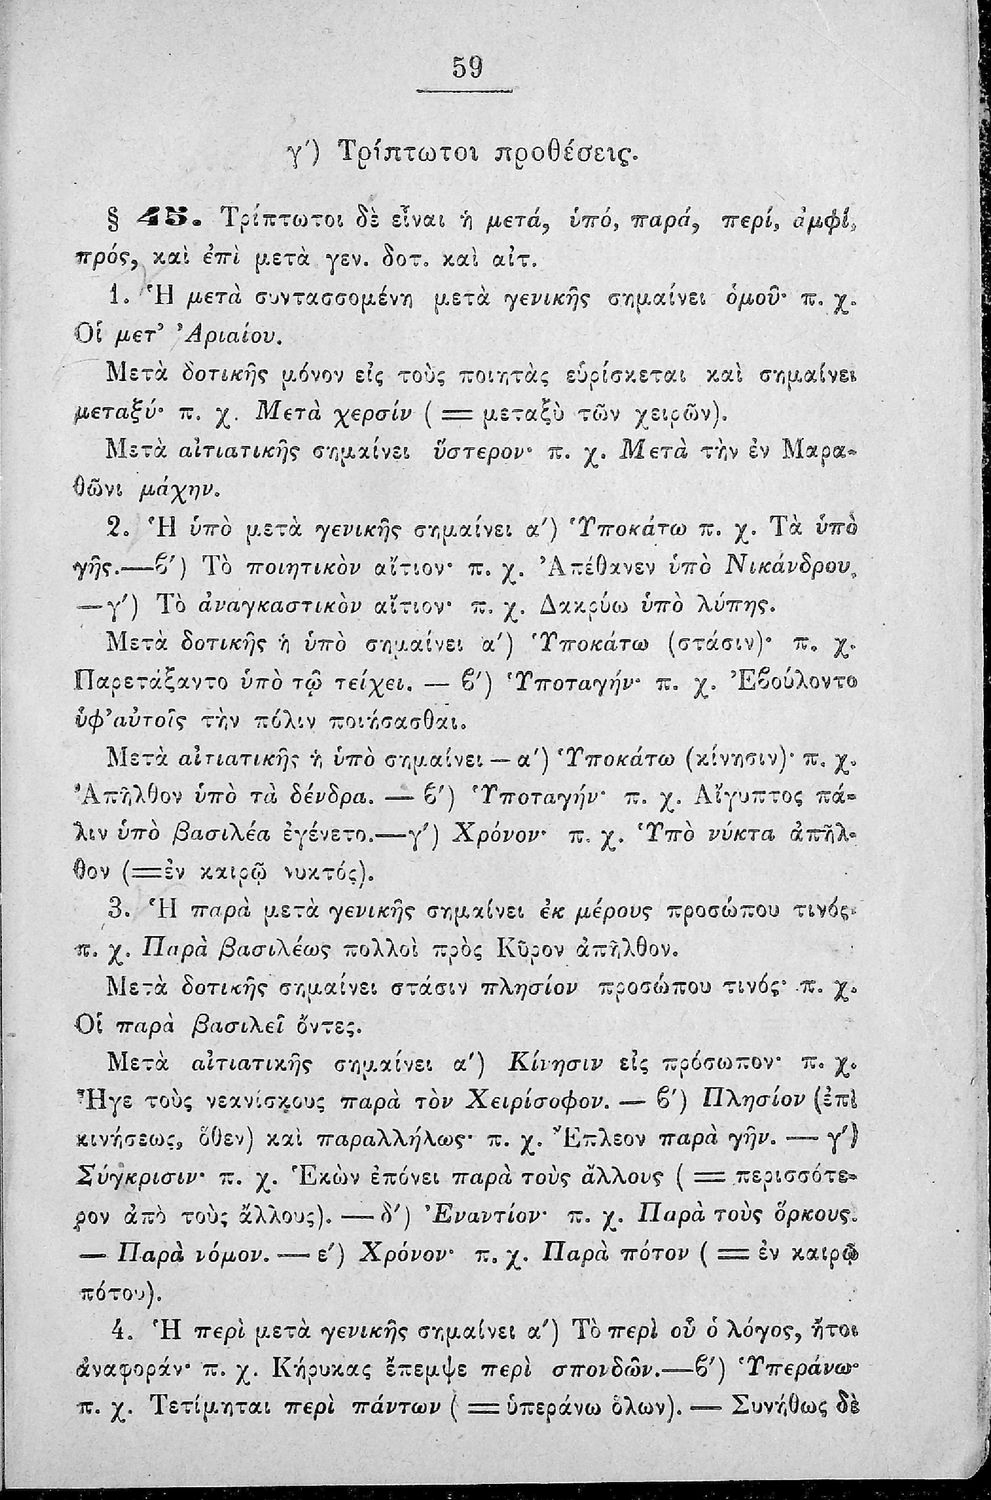 59
γ΄) Τρίπτωτοι προθέσεις.
§ 45. Τρίπτωτοι δὲ εἶναι ἡ μετά, ὑπό, παρά, περί, ἀμφί,
πρός, καὶ ἐπὶ μετὰ γεν. δοτ. καὶ αἰτ.
1. Ἡ μετὰ συντασσομένη μετὰ γενικῆς σημαίνει ὁμοῦ· π. χ.
Οἱ μετ’ Ἀριαίου.
Μετὰ δοτικῆς μόνον εἰς τοὺς ποιητὰς εὑρίσκεται καὶ σημαίνει
μεταξύ· π. χ. Μετὰ χερσίν ( = μεταξὺ τῶν χειρῶν).
Μετὰ αἰτιατικῆς σημαίνει ὕστερον· π. χ. Μετὰ τὴν ἐν Μαρα-
θῶνι μάχην.
2. Ἡ ὑπὸ μετὰ γενικῆς σημαίνει α΄) Ὑποκάτω π. χ. Τὰ ὑπὸ
γῆς.—ϐ΄) Τὸ ποιητικὸν αἴτιον· π. χ. Ἀπέθανεν ὑπὸ Νικάνδρου.
—γ΄) Τὸ ἀναγκαστικὸν αἴτιον· π. χ. Δακρύω ὑπὸ λύπης.
Μετὰ δοτικῆς ἡ ὑπὸ σημαίνει α΄) Ὑποκάτω (στάσιν)· π. χ.
Παρετάξαντο ὑπὸ τῷ τείχει. — ϐ΄) Ὑποταγήν· π. χ. Ἐϐούλοντο
ὑφ’αὑτοῖς τὴν πόλιν ποιήσασθαι.
Μετὰ αἰτιατικῆς ἡ ὑπὸ σημαίνει — α΄) Ὑποκάτω (κίνησιν)· π. χ.
Ἀπῆλθον ὑπὸ τὰ δένδρα. — ϐ΄) Ὑποταγήν· π. χ. Αἴγυπτος πά-
λιν ὑπὸ βασιλέα ἐγένετο.—γ΄) Χρόνον· π. χ. Ὑπὸ νύκτα ἀπῆλ-
θον (=ἐν καιρῷ νυκτός).
3. Ἡ παρὰ μετὰ γενικῆς σημαίνει ἐκ μέρους προσώπου τινός·
π. χ. Παρὰ βασιλέως πολλοὶ πρὸς Κῦρον ἀπῆλθον.
Μετὰ δοτικῆς σημαίνει στάσιν πλησίον προσώπου τινός· π. χ.
Οἱ παρὰ βασιλεῖ ὄντες.
Μετὰ αἰτιατικῆς σημαίνει α΄) Κίνησιν εἰς πρόσωπον· π. χ.
Ἦγε τοὺς νεανίσκους παρὰ τὸν Χειρίσοφον. — ϐ΄) Πλησίον (ἐπὶ
κινήσεως, ὅθεν) καὶ παραλλήλως· π. χ. Ἔπλεον παρὰ γῆν. — γ΄)
Σύγκρισιν· π. χ. Ἑκὼν ἐπόνει παρὰ τοὺς ἄλλους ( = περισσότε-
ρον ἀπὸ τοὺς ἄλλους). — δ΄) Ἐναντίον· π. χ. Παρὰ τοὺς ὅρκους.
— Παρὰ νόμον. — ε΄) Χρόνον· π. χ. Παρὰ πότον ( = ἐν καιρῷ
πότου).
4. Ἡ περὶ μετὰ γενικῆς σημαίνει α΄) Τὸ περὶ οὗ ὁ λόγος, ἤτοι
ἀναφοράν· π. χ. Κήρυκας ἔπεμψε περὶ σπονδῶν.—ϐ΄) Ὑπεράνω·
π. χ. Τετίμηται περὶ πάντων ( = ὑπεράνω ὅλων). — Συνήθως δὲ